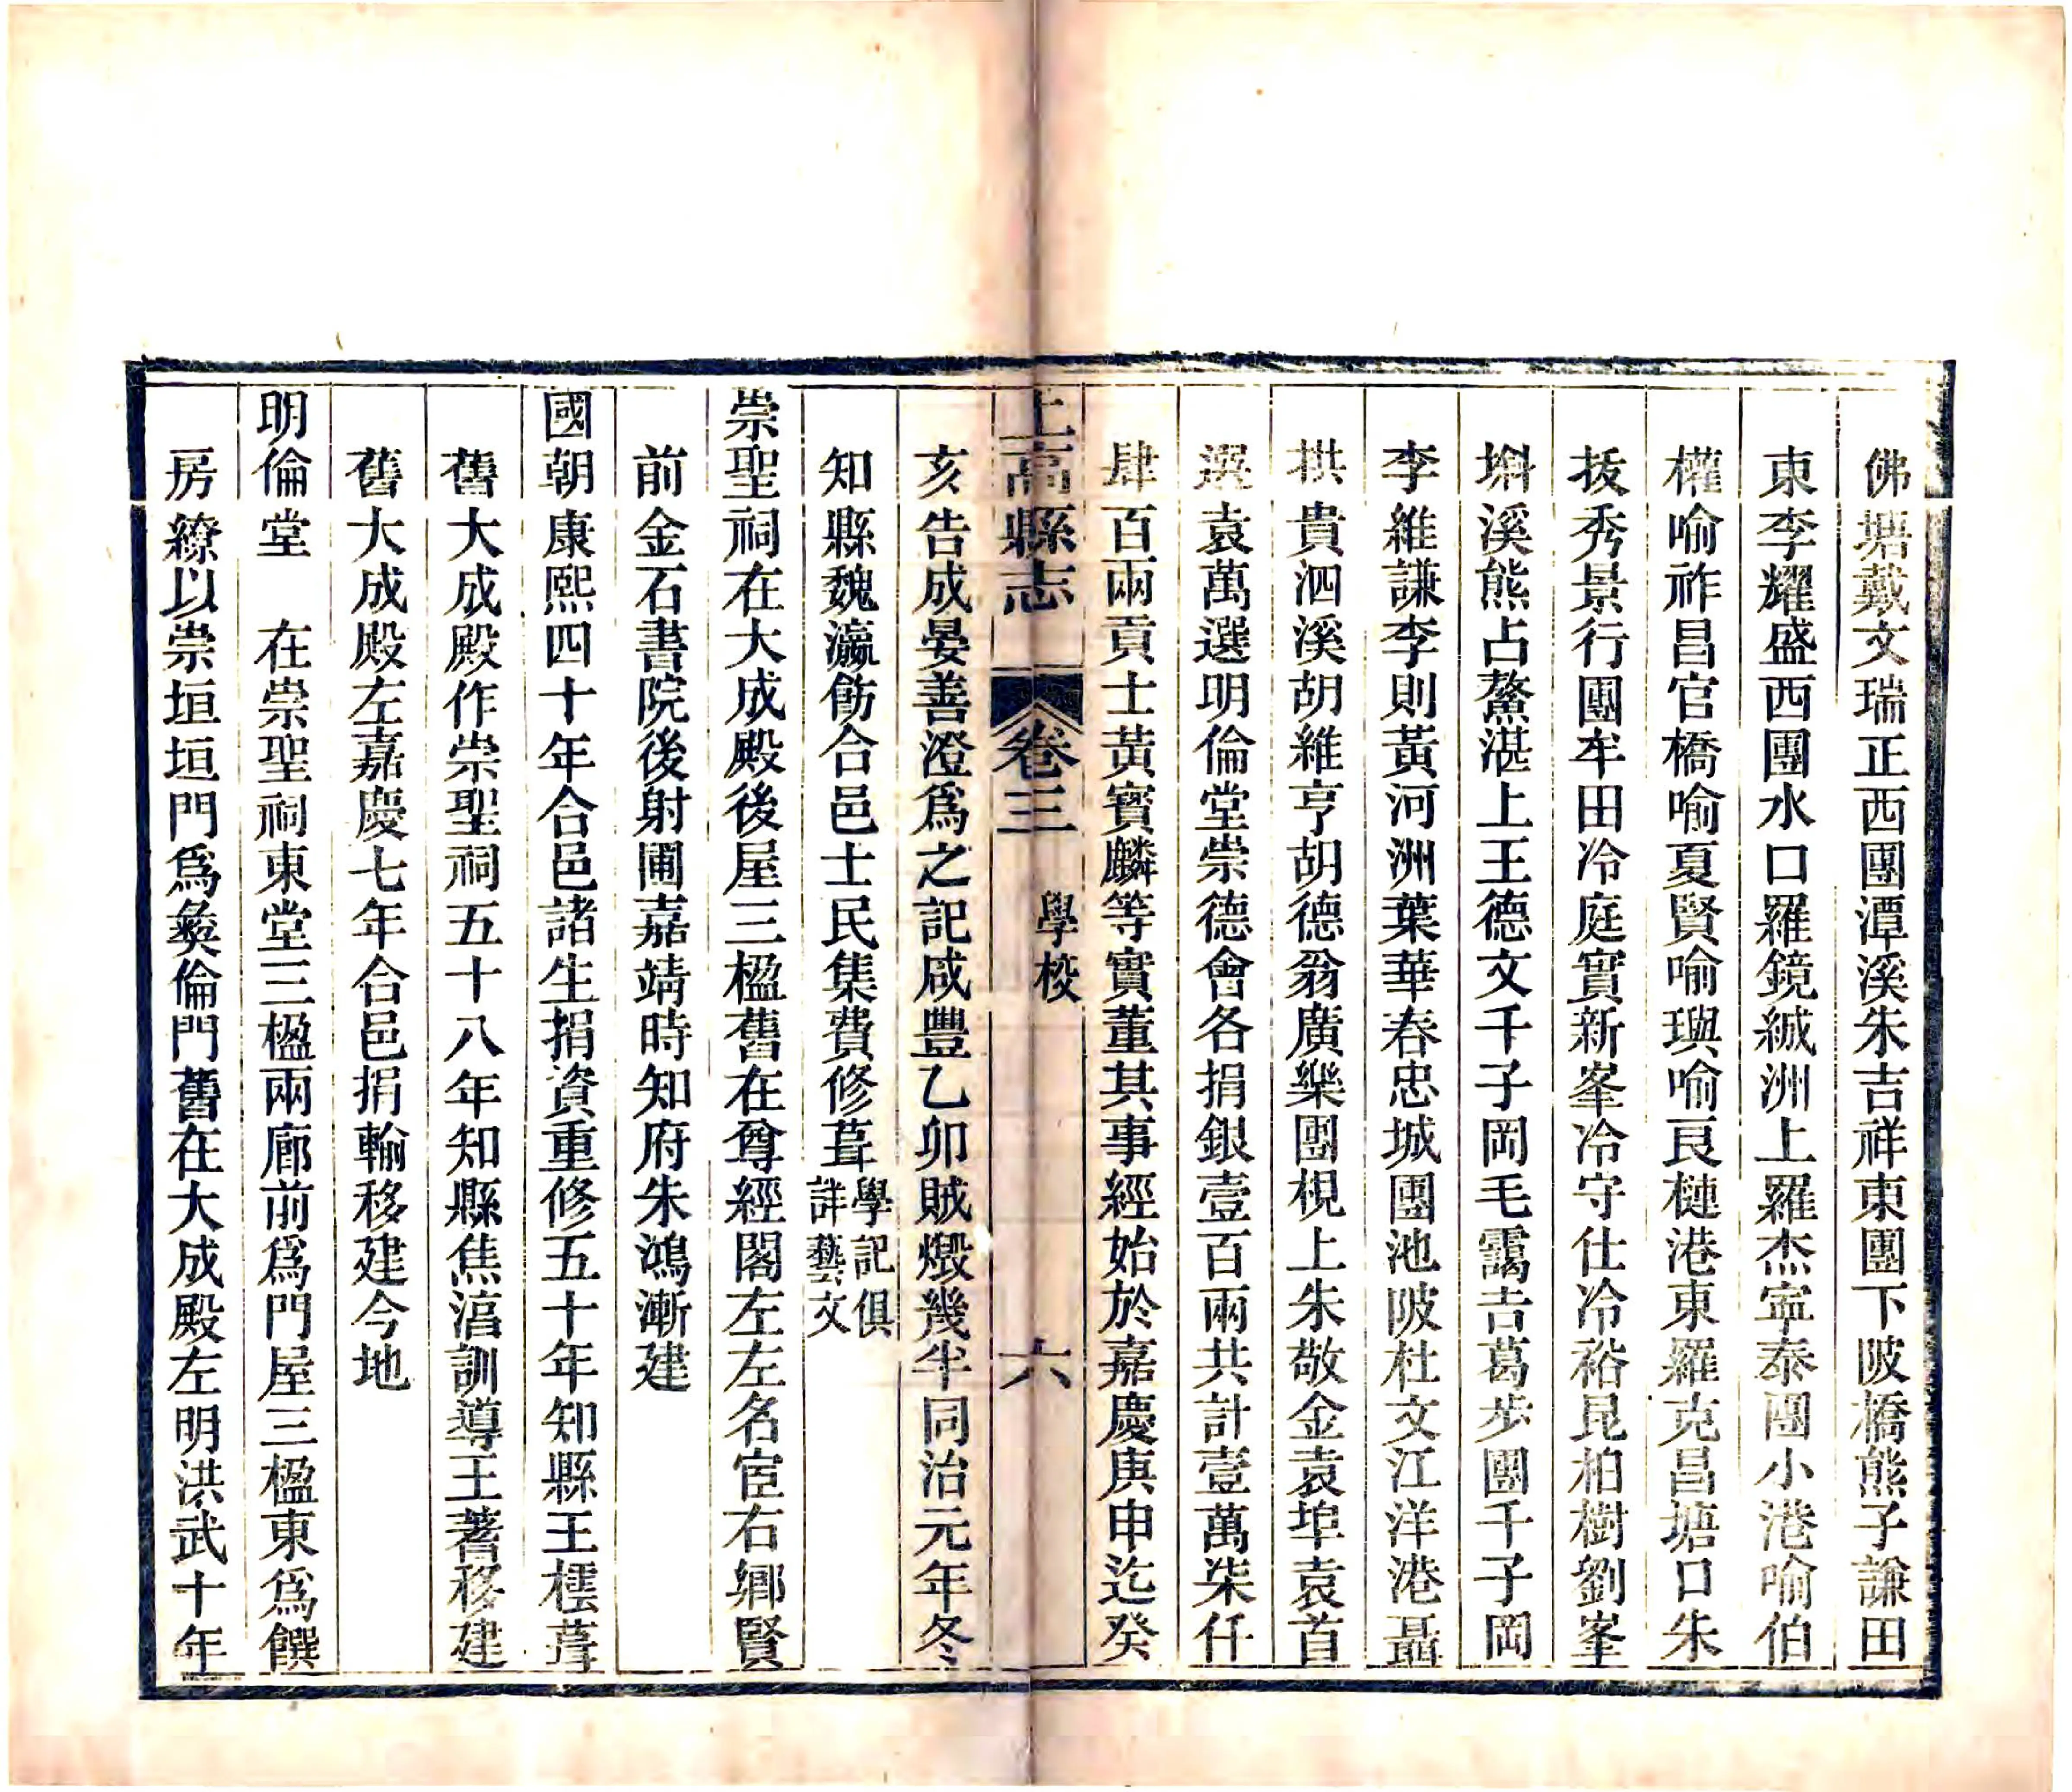 佛塘戴文瑞正西團潭溪朱吉祥東團下陂橋熊子謙田
東李耀盛西團水口羅鏡緘洲上羅杰寍泰團小港喻伯
權喻祚昌官橋喻夏賢喻璵喻良槤港東羅克昌塘口朱
拔秀景行團牟田冷庭實新峯冷守仕冷裕昆柏樹劉峯
㪷溪熊占鰲湛上王德文千子岡毛靄吉葛步團千子岡
李維謙李則黃河洲葉華春忠城團池陂杜文江洋港聶
拱貴泗溪胡維亨胡德翁廣樂團梘上朱敬金袁埠袁首
選袁萬選明倫堂崇德會各捐銀壹百兩共計壹萬柒仟
肆百兩貢士黃賓麟等實董其事經始於嘉慶庚申迄癸
上高縣志 卷三 學校 六
亥告成晏善澄爲之記咸豐乙卯賊燬幾半同治元年冬
知縣魏瀛飭合邑士民集費修葺學記俱詳藝文
崇聖祠在大成殿後屋三楹舊在尊經閣左左名宦右鄉賢
前金石書院後射圃嘉靖時知府朱鴻漸建
國朝康熙四十年合邑諸生捐資重修五十年知縣王橒葺
舊大成殿作崇聖祠五十八年知縣焦湻訓導王蓍移建
舊大成殿左嘉慶七年合邑捐輸移建今地
明倫堂 在崇聖祠東堂三楹兩廊前爲門屋三楹東爲饌
房繚以崇垣垣門爲彝倫門舊在大成殿左明洪武十年